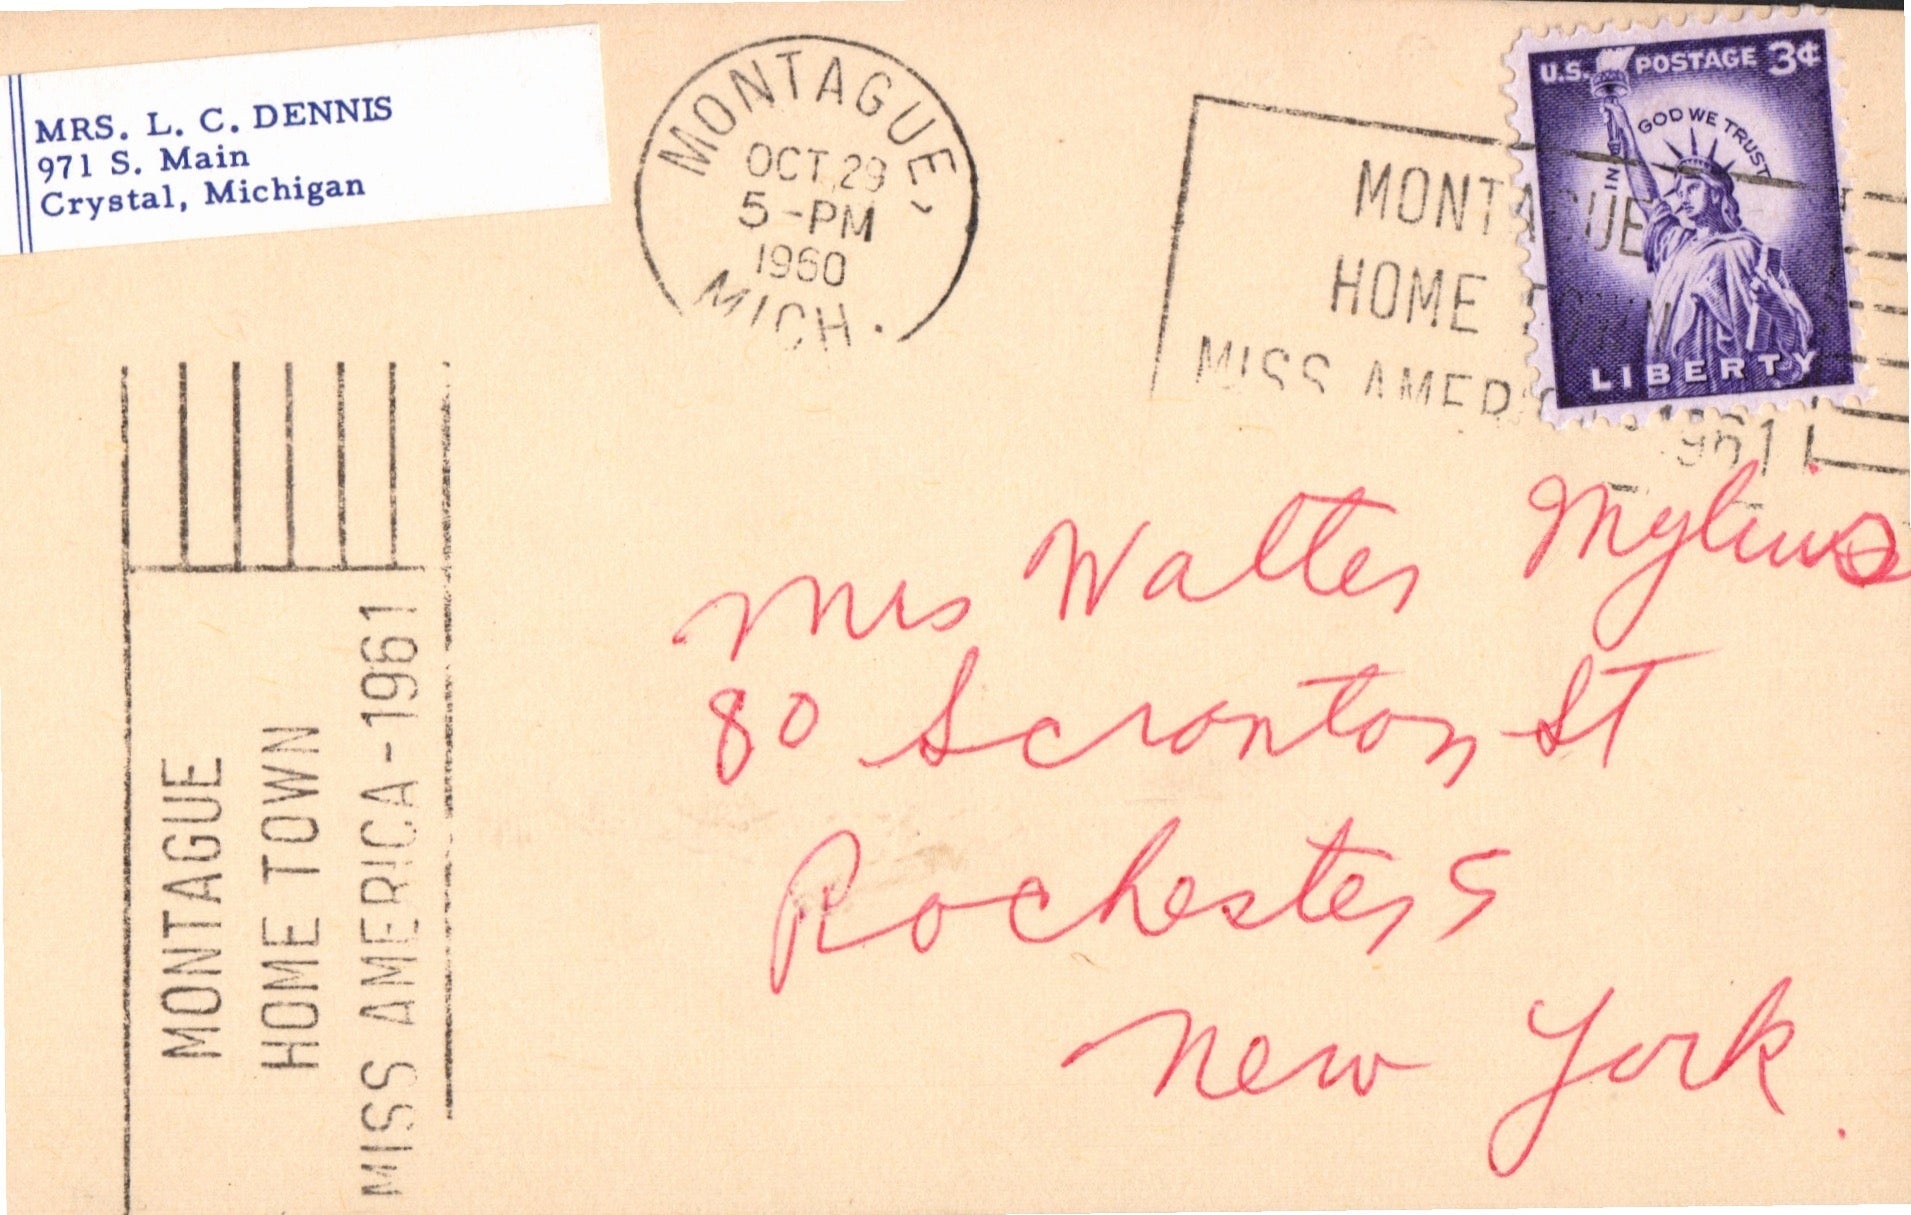 MRS. L. C. DENNIS
971 S. Main
Crystal, Michigan
MONTAGUE,
OCT 29
5-PM
1960
MICH.
U.S. POSTAGE 3¢
IN GOD WE TRUST
LIBERTY
MONTAGUE
HOME TOWN
MISS AMERICA 1961
Mrs Walter Mylius
80 Scranton St
Rochester 5
New York.
MONTAGUE
HOME TOWN
MISS AMERICA-1961